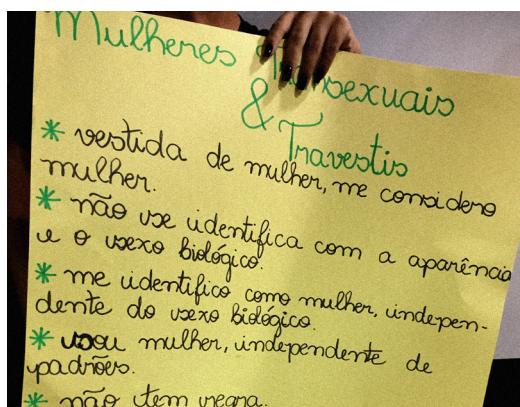 Mulheres Transexuais
&
Travestis
* vestida de mulher, me considero
mulher.
* não se identifica com a aparência
e o sexo biológico.
* me identifico como mulher, indepen-
dente do sexo biológico.
* sou mulher, independente de
padrões.
* não tem regra.